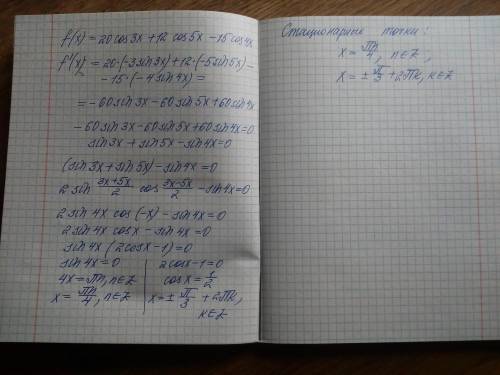 f(x) = 20 cos 3x + 12 cos 5x − 15 cos 4x
f'(x) = 20·(−3 sin 3x) + 12·(−5 sin 5x) −
− 15·(−4 sin 4x) =
= −60 sin 3x − 60 sin 5x + 60 sin 4x
−60 sin 3x − 60 sin 5x + 60 sin 4x = 0
sin 3x + sin 5x − sin 4x = 0
(sin 3x + sin 5x) − sin 4x = 0
2 sin (3x+5x)/2 cos (3x−5x)/2 − sin 4x = 0
2 sin 4x cos (−x) − sin 4x = 0
2 sin 4x cos x − sin 4x = 0
sin 4x (2cos x − 1) = 0
sin 4x = 0
4x = πn, n∈Z
x = πn/4, n∈Z
2cos x − 1 = 0
cos x = 1/2
x = ± π/3 + 2πk,
k∈Z
Стационарные точки:
x = πn/4, n∈Z,
x = ± π/3 + 2πk, k∈Z